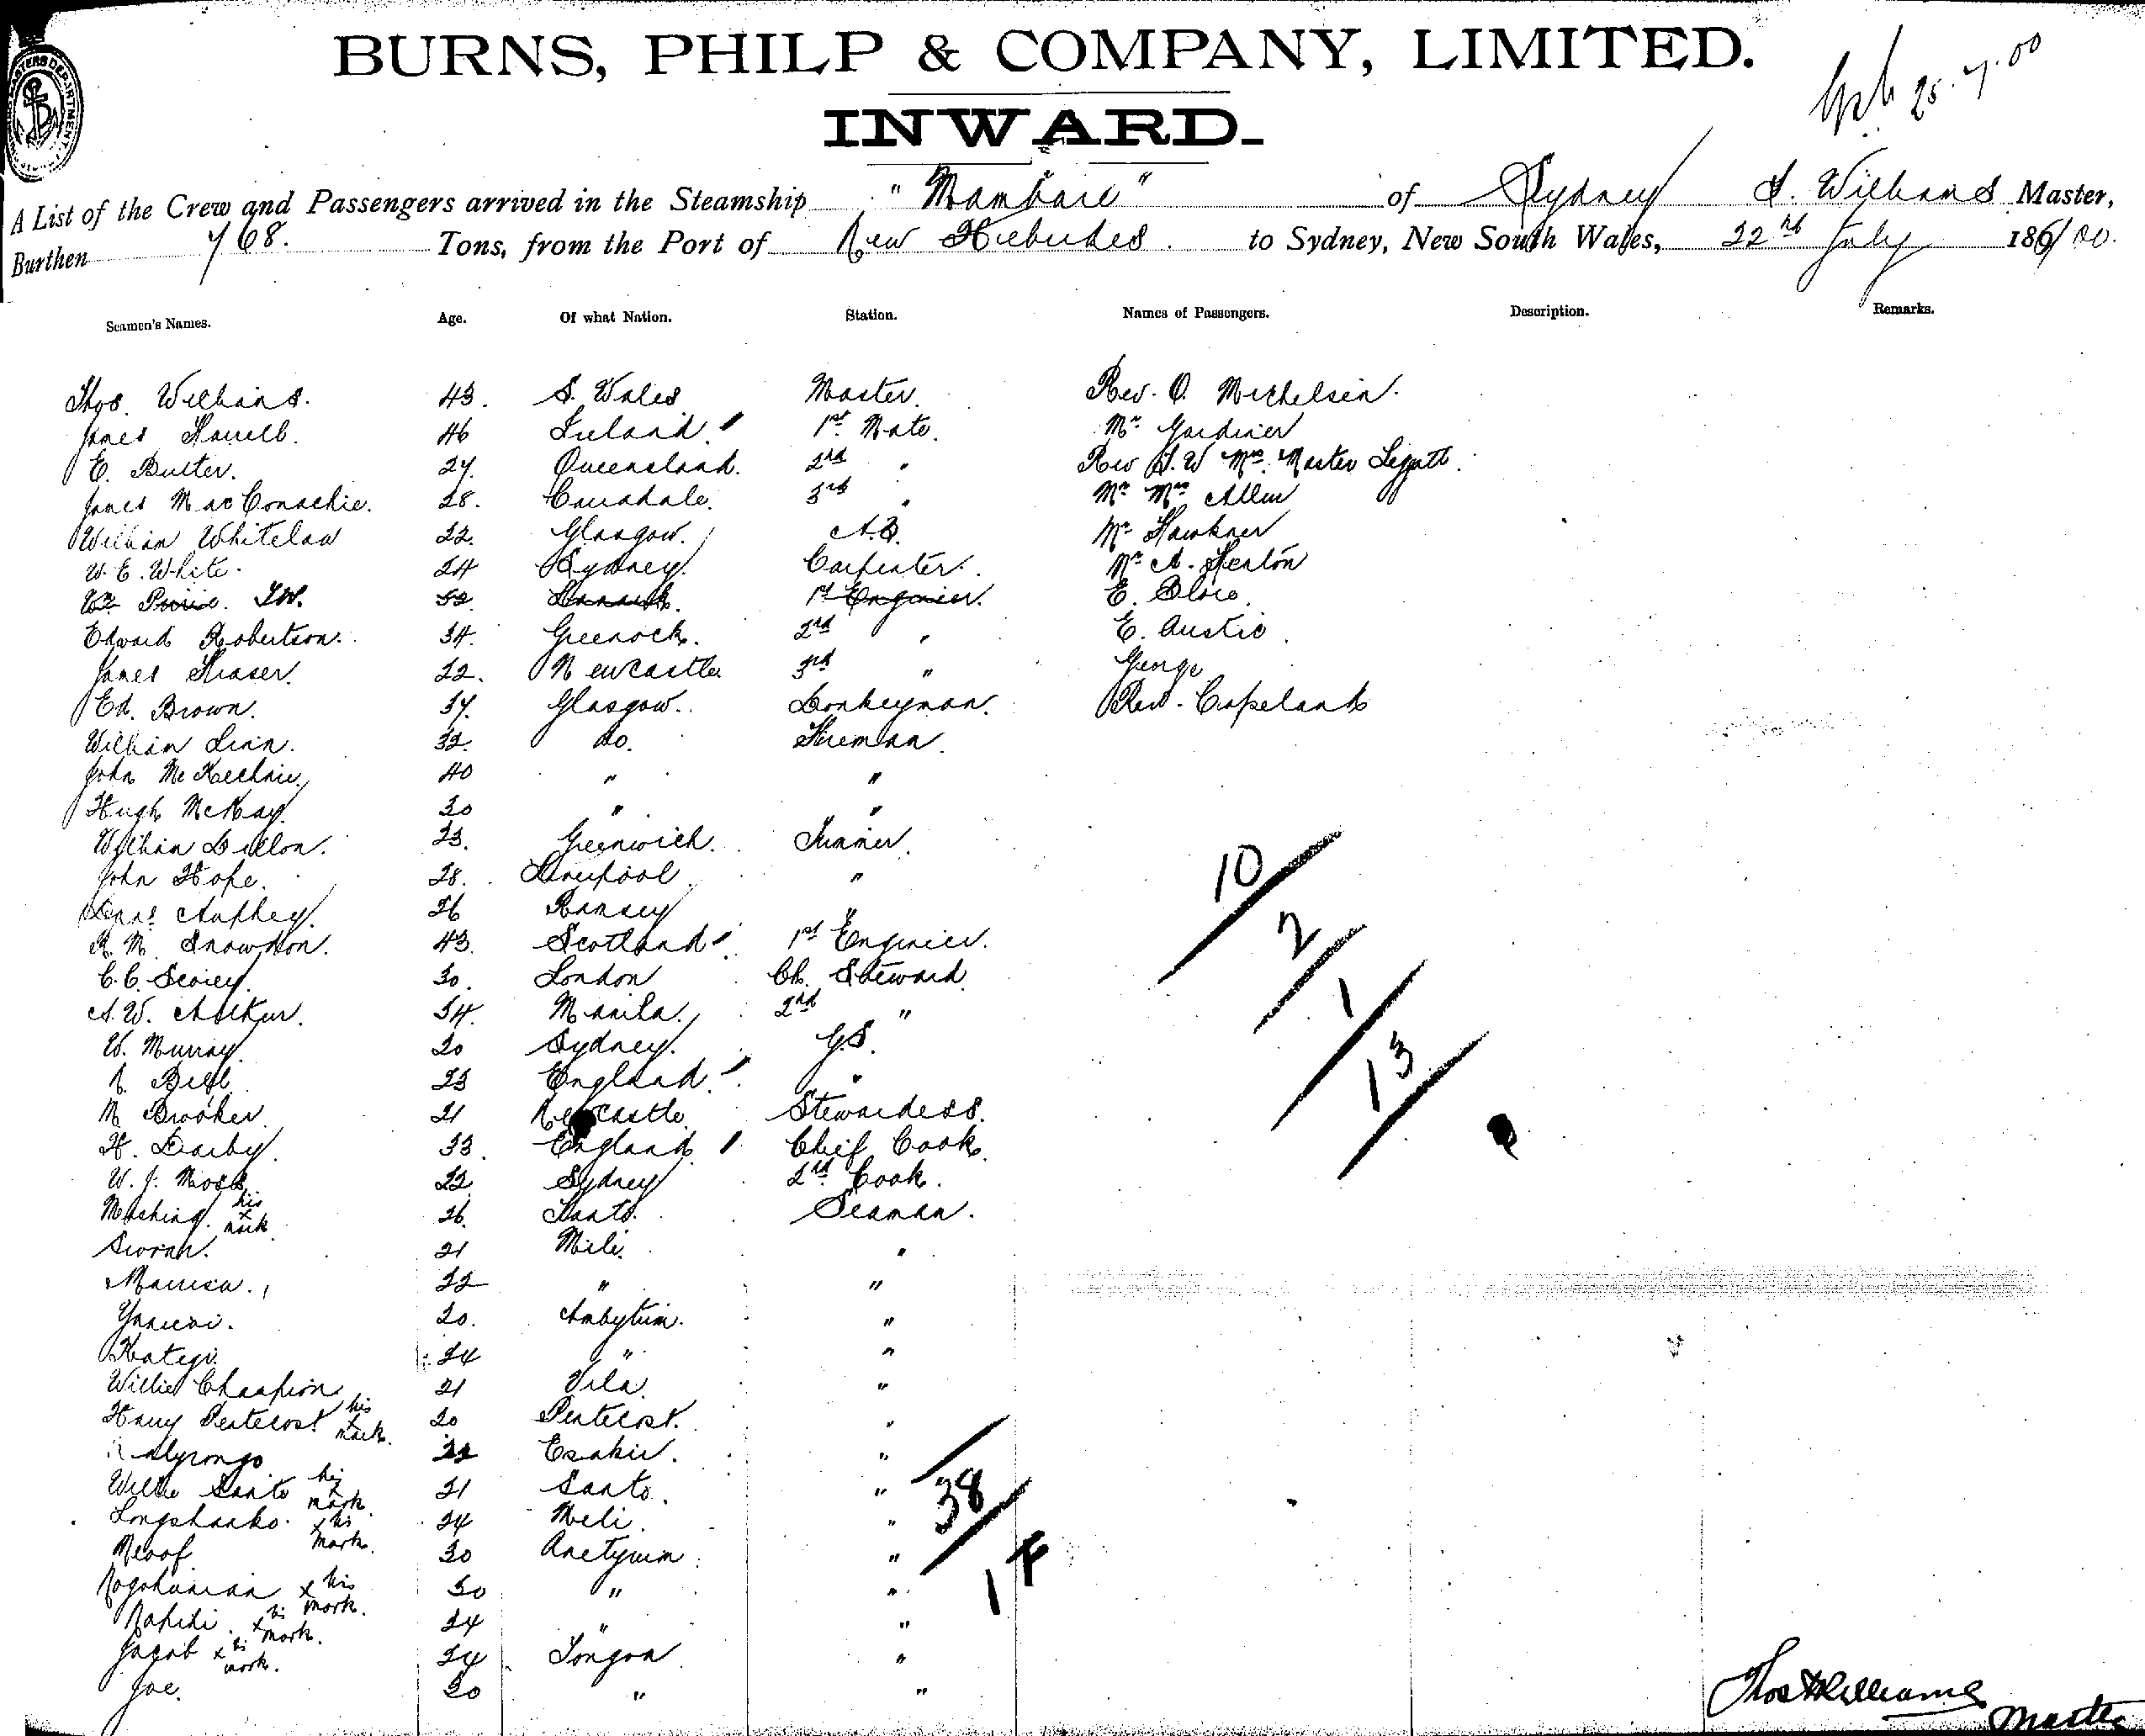 BURNS, PHILP & COMPANY, LIMITED.
25.7.00
INWARD.
A List of the Crew and Passengers arrived in the Steamship "Mambare" of Sydney T. Williams Master,
Burthen 768. Tons, from the Port of New Hebrides. to Sydney, New South Wales, 22nd July 186/00.
Seamen's Names. Age. Of what Nation. Station. Names of Passengers. Description. Remarks.
Thos. Williams. 43. S. Wales Master. Rev. O. Michelsen.
James 46 Ireland. 1st Mate. Mr. Gardiner
E. Butter. 27. Queensland. 2nd " Rev T.W Mrs. Master Legatt.
James MacConachie. 28. Carradale. 3rd " Mr Mrs Allen
William Whitelaw 22. Glasgow. A.B. Mr Hawkner
W. E. White. 24 Sydney. Carpenter. Mr A. Heaton
Wm Pirrie. 52. Lanark. 1st Engineer. E.
Edward Robertson. 34. Greenock. 2nd " E. Austic.
James Fraser. 22. Newcastle 3rd " George
Ed. Brown. 37. Glasgow. Donkeyman. Rev. Copeland
William Linn. 32. do. Fireman.
John McKechnie 40 " "
Hugh McKay. 30 " "
William Dillon. 23. Greenwich. Trimmer.
John Hope. 28. Liverpool "
26 Ramsey "
R. M. Snowdon. 43. Scotland 1st Engineer.
C. C. 30. London Ch. Steward.
A. W. 34. Manila. 2nd "
W. Murray. 20 Sydney. G.S.
23 England. "
M Brooker. 21 Newcastle. Stewardess.
H. Darby. 33. England Chief Cook.
W. J. Moss 22 Sydney 2nd Cook.
his x mark 26. Santo. Seaman.
21 Mele. "
22 " "
20. "
24 " "
Willie Champion 21 Vila. "
Harry Pentecost his x mark. 20 Pentecost. "
22 "
Willie Santo his x mark. 21 Santo. "
Longshanks. x his mark. 24 Meli. "
30 Anetyum. "
x his mark. 30 " "
x his mark. 24 " "
Jacob x his mark. 24 Tongoa "
Joe. 20 " "
10
2
1
13
38
1 F
Thos Williams
Master